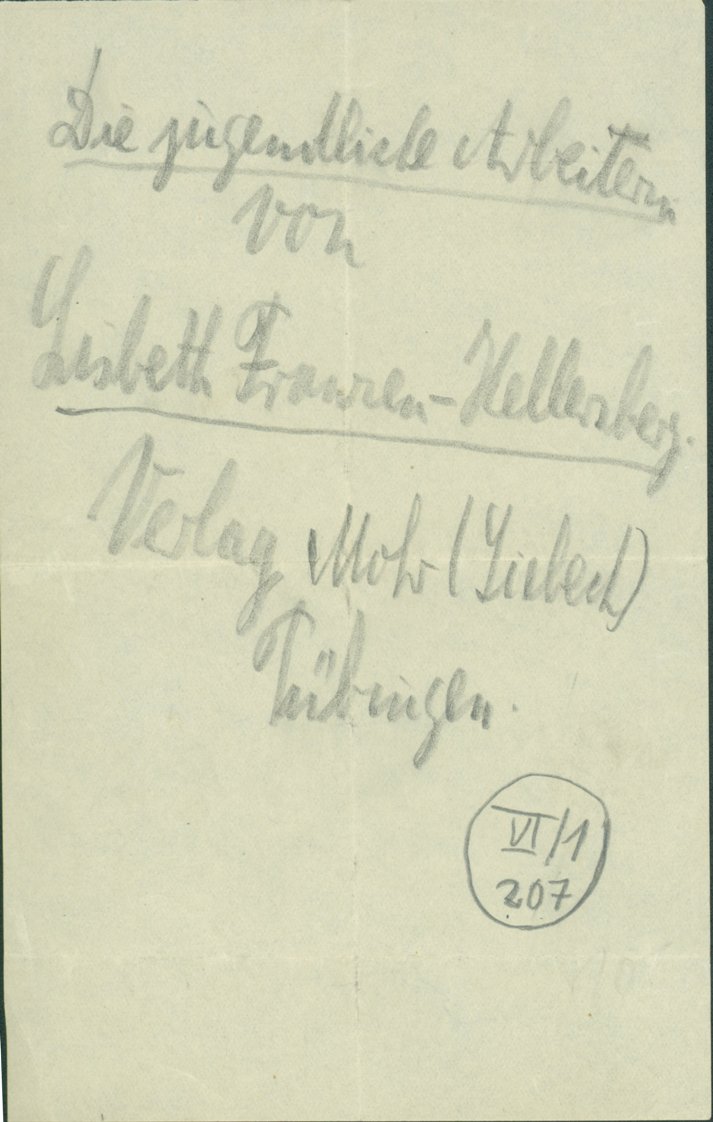 Die jugendliche Arbeiterin
von
Lisbeth Franzen-Hellersberg.
Verlag Mohr (Siebeck)
Tübingen.
VI/1
207